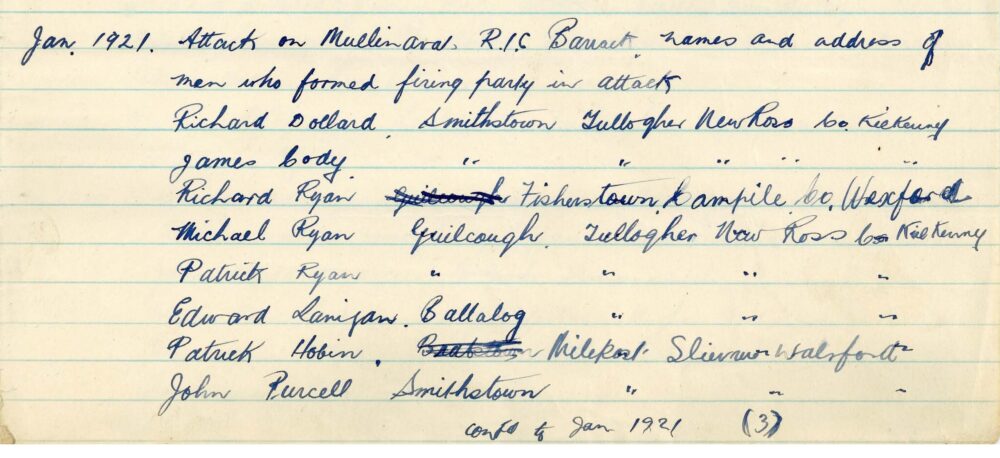 Jan. 1921. Attack on Mullinavat R.I.C Barrack names and address of
men who formed firing party in attack
Richard Dollard Smithstown Tullogher New Ross Co. Kilkenny
James Cody " " " " "
Richard Ryan Fisherstown Campile Co. Wexford
Michael Ryan Guilcough Tullogher New Ross Co Kilkenny
Patrick Ryan " " " "
Edward Lanigan. Ballalog " " "
Patrick Hobin, Milepost Slieverue Waterford
John Purcell Smithstown " " "
contd to Jan 1921 (3)